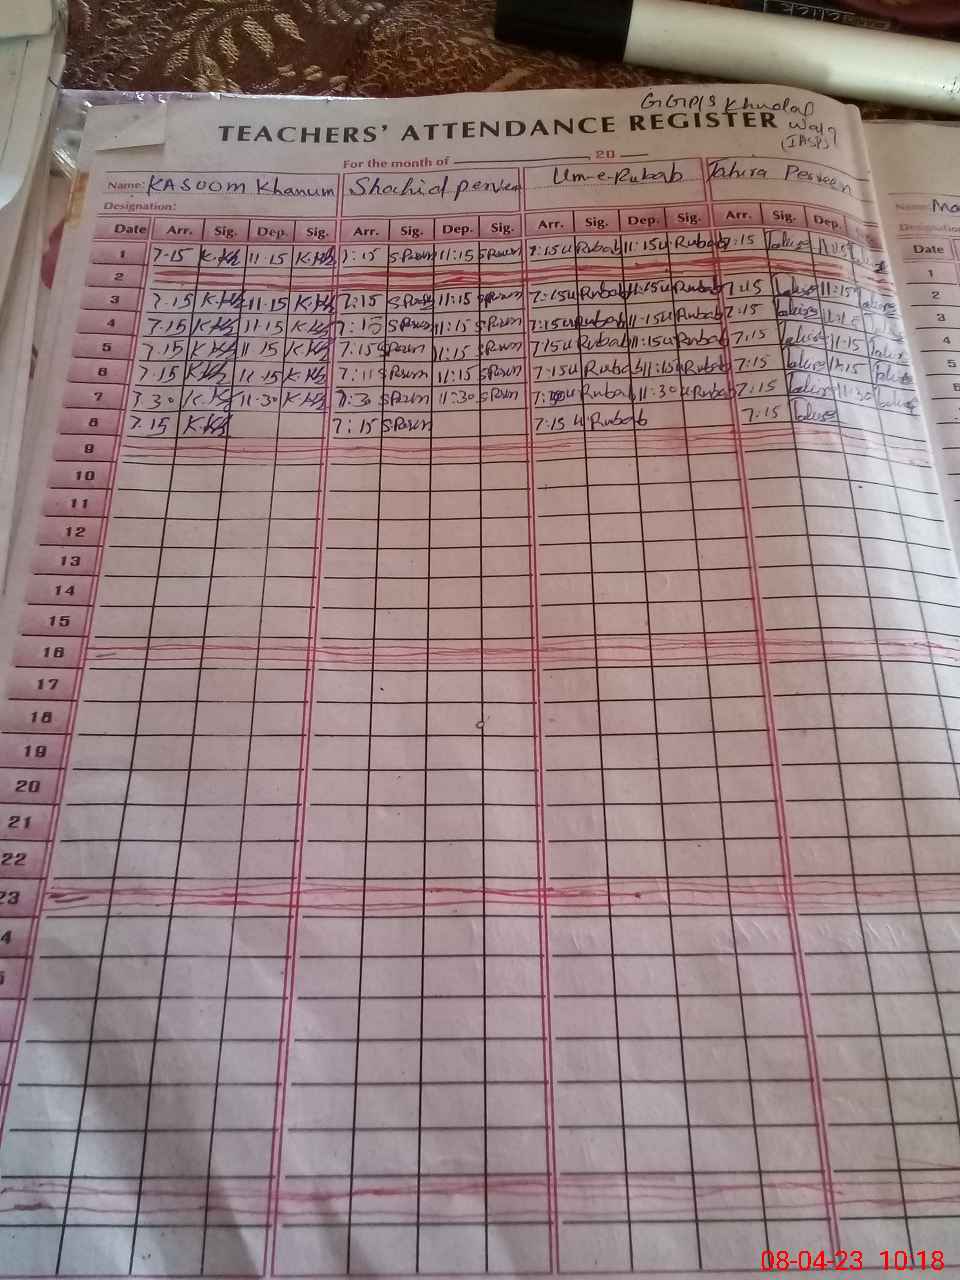 click
GGP/S Khudad
TEACHERS' ATTENDANCE REGISTER
(IASP)
For the month of 20
Name: KASOOM Khanum Shahid perveen Um-e-Rubab Tahira Perveen Name: Ma
Designation: Designation
Date Arr. Sig. Dep. Sig. Arr. Sig. Dep. Sig. Arr. Sig. Dep. Sig. Arr. Sig. Dep. Date
1 7-15 K.Kh 11-15 K.Kh 7:15 SParvn 11:15 SParvn 7:15 U Rubab 11:15 U Rubab 7:15 Tahira 11:15 1
2 2
3 7.15 K.Kh 11-15 K.Kh 7:15 SParvn 11:15 SParvn 7:15 U Rubab 11:15 U Rubab 7:15 Tahira 11:15 Tahira 3
4 7.15 K.Kh 11-15 K.Kh 7:15 SParvn 11:15 SParvn 7:15 U Rubab 11:15 U Rubab 7:15 Tahira 11:15 Tahira 4
5 7.15 K.Kh 11 15 K.Kh 7:15 SParvn 11:15 SParvn 7:15 U Rubab 11:15 U Rubab 7:15 Tahira 11:15 Tahira 5
6 7.15 K.Kh 11.15 K.Kh 7:15 SParvn 11:15 SParvn 7:15 U Rubab 11:15 U Rubab 7:15 Tahira 11:15 Tahira 6
7 7.30 K.Kh 11-30 K.Kh 7:30 SParvn 11:30 SParvn U Rubab 11:30 U Rubab 7:15 Tahira 11:30 Tahira
8 7.15 K.Kh 7:15 SParvn 7:15 U Rubab 7:15 Tahira
9
10
11
12
13
14
15
16
17
18
19
20
21
22
23
4
08-04-23 10:18